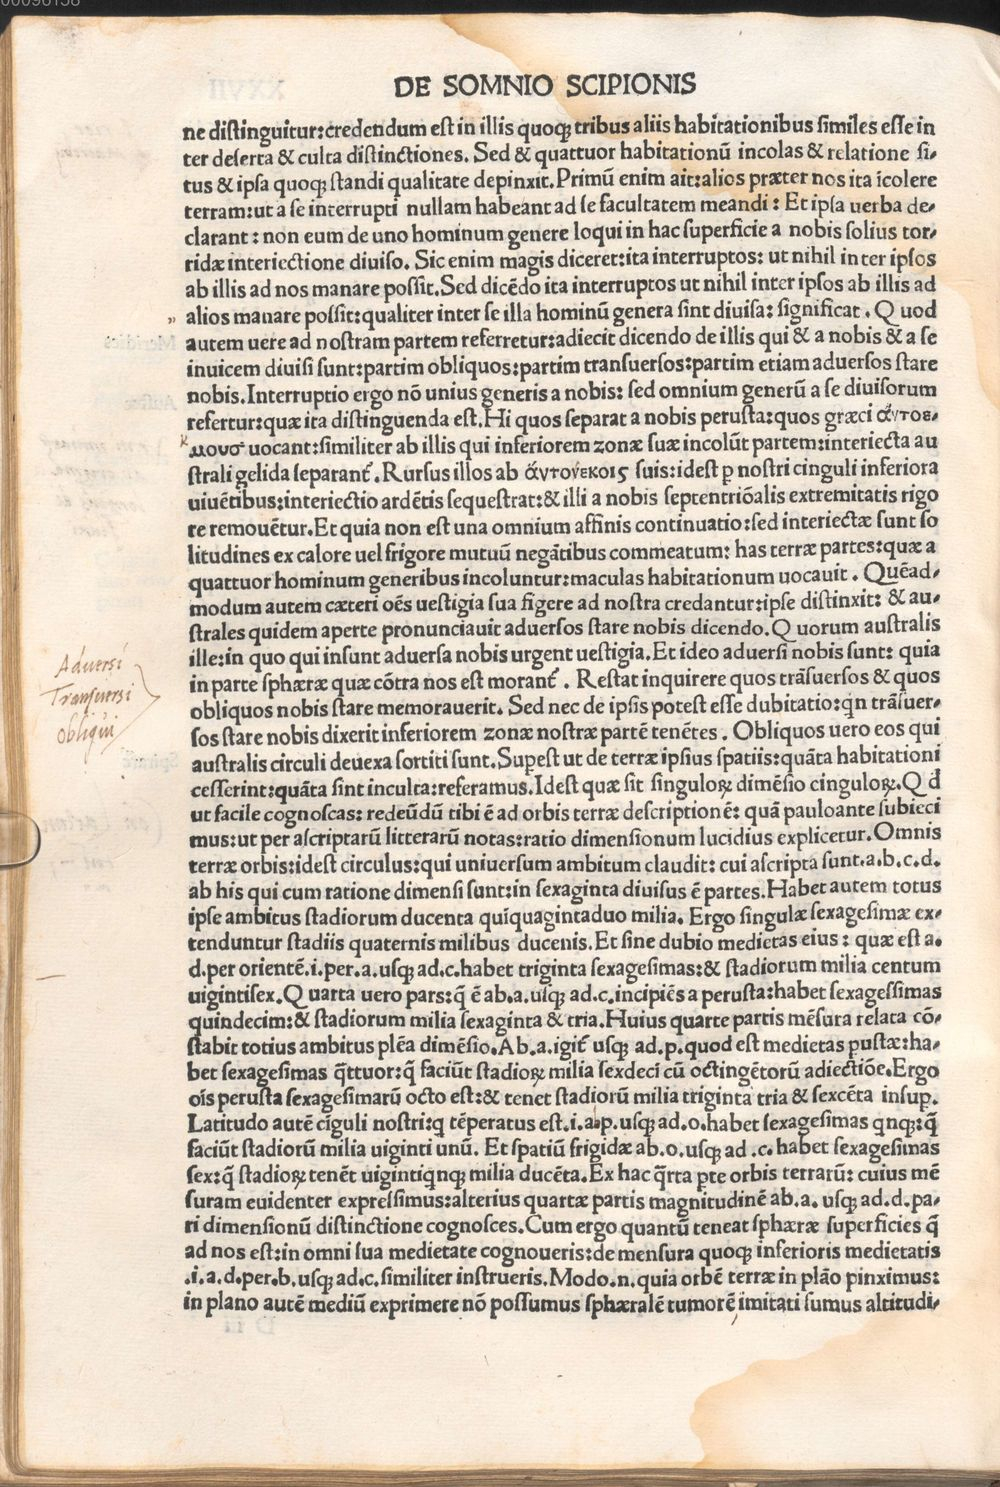 00096158
DE SOMNIO SCIPIONIS
ne distinguitur:credendum est in illis quoqꝫ tribus aliis habitationibus similes esse in
ter deserta & culta distinctiones. Sed & quattuor habitationū incolas & relatione si-
tus & ipsa quoqꝫ standi qualitate depinxit. Primū enim ait:alios præter nos ita icolere
terram:ut a se interrupti nullam habeant ad se facultatem meandi : Et ipsa uerba de-
clarant : non eum de uno hominum genere loqui in hac superficie a nobis solius tor-
ridæ interiectione diuiso. Sic enim magis diceret:ita interruptos: ut nihil inter ipsos
ab illis ad nos manare possit. Sed dicēdo ita interruptos ut nihil inter ipsos ab illis ad
alios manare possit:qualiter inter se illa hominū genera sint diuisa: significat . Quod
autem uere ad nostram partem referretur:adiecit dicendo de illis qui & a nobis & a se
inuicem diuisi sunt:partim obliquos:partim transuersos:partim etiam aduersos stare
nobis. Interruptio ergo nō unius generis a nobis: sed omnium generū a se diuisorum
refertur:quæ ita distinguenda est. Hi quos separat a nobis perusta:quos græci ἀντοε-
μουσ uocant:similiter ab illis qui inferiorem zonæ suæ incolūt partem:interiecta au
strali gelida separant᷑ . Rursus illos ab ἀντοὐεκοις suis:idest ꝑ nostri cinguli inferiora
uiuētibus:interiectio ardētis sequestrat:& illi a nobis septentriōalis extremitatis rigo
re remouētur. Et quia non est una omnium affinis continuatio:sed interiectæ sunt so
litudines ex calore uel frigore mutuū negātibus commeatum: has terræ partes:quæ a
quattuor hominum generibus incoluntur:maculas habitationum uocauit . Quēad-
modum autem cæteri oēs uestigia sua figere ad nostra credantur:ipse distinxit: & au-
strales quidem aperte pronunciauit aduersos stare nobis dicendo. Quorum australis
ille:in quo qui insunt aduersa nobis urgent uestigia. Et ideo aduersi nobis sunt: quia
in parte sphæræ quæ cōtra nos est morant᷑ . Restat inquirere quos trāsuersos & quos
obliquos nobis stare memorauerit. Sed nec de ipsis potest esse dubitatio:qn trāsuer-
sos stare nobis dixerit inferiorem zonæ nostræ partē tenētes . Obliquos uero eos qui
australis circuli deuexa sortiti sunt. Suꝑest ut de terræ ipsius spatiis:quāta habitationi
cesserint:quāta sint inculta:referamus. Idest quæ sit singuloꝝ dimēsio cinguloꝝ. Q đ
ut facile cognoscas: redeūdū tibi ē ad orbis terræ descriptionē: quā pauloante subieci
mus:ut per ascriptarū litterarū notas:ratio dimensionum lucidius explicetur. Omnis
terræ orbis:idest circulus:qui uniuersum ambitum claudit: cui ascripta sunt.a.b.c.d.
ab his qui cum ratione dimensi sunt:in sexaginta diuisus ē partes. Habet autem totus
ipse ambitus stadiorum ducenta quīquagintaduo milia. Ergo singulæ sexagesimæ ex-
tenduntur stadiis quaternis milibus ducenis. Et sine dubio medietas eius : quæ est a.
d.per orientē.i.per.a.usqꝫ ad.c.habet triginta sexagesimas:& stadiorum milia centum
uigintisex. Quarta uero pars:q̄ ē ab.a.usqꝫ ad.c.incipiēs a perusta:habet sexagessimas
quindecim:& stadiorum milia sexaginta & tria. Huius quarte partis mēsura relata cō-
stabit totius ambitus plēa dimēsio. Ab.a.igit᷑ usqꝫ ad.p.quod est medietas ꝑustæ:ha-
bet sexagesimas q̄ttuor:q̄ faciūt stadioꝝ milia sexdeci cū octingētorū adiectiōe. Ergo
ois perusta sexagesimarū octo est:& tenet stadiorū milia triginta tria & sexcēta insuꝑ.
Latitudo autē cīguli nostri:q tēperatus est.i.a.p.usqꝫ ad.o.habet sexagesimas qnqꝫ:q̄
faciūt stadiorū milia uiginti unū. Et spatiū frigidæ ab.o.usqꝫ ad .c. habet sexagesimas
sex:q̄ stadioꝝ tenēt uigintiqnqꝫ milia ducēta. Ex hac q̄rta ꝑte orbis terrarū: cuius mē
suram euidenter expressimus:alterius quartæ partis magnitudinē ab.a. usqꝫ ad.d.pa-
ri dimensionū distinctione cognosces. Cum ergo quantū teneat sphæræ superficies q̄
ad nos est:in omni sua medietate cognoueris:de mensura quoqꝫ inferioris medietatis
.i.a.d.per.b.usqꝫ ad.c.similiter instrueris. Modo.n.quia orbē terræ in plāo pinximus:
in plano autē mediū exprimere nō possumus sphæralē tumorē imitati sumus altitudi-
Aduersi
Transuersi
obliqui